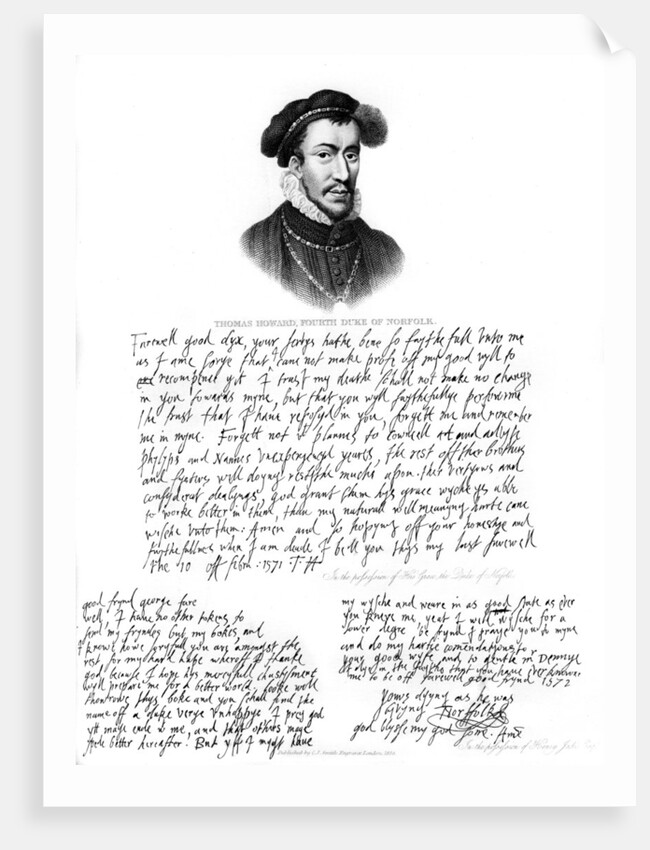 THOMAS HOWARD, FOURTH DUKE OF NORFOLK.
Farewell good dyx, your servys hathe bene so faythefull unto me
as I ame sorye that I cane not make profe off my good wyll to
recompence yt I trust my deathe shall not make no change
in you towards myne, but that you wyll faythefullye performe
the trust that I have reposyd in you, forgett me and remember
me in myne. Forgett not to cowncell and advyse
Phylyps and Nannes unexperyencyd yeares, the rest off ther brothers
and systers well doyng restythe muche upon ther vertyows and
consyderat dealyngs, god grant them hys grace wyche ys able
to worke better in them, than my naturall well meanyng harte cane
wysche unto them: Amen and so hopyng off your honestye and
faythefullnes when I am deade I bell you thys my last farewell
the 10 off febru: 1571 T.H
In the possession of His Grace the Duke of Norfolk.
good frynd george fare
well, I have no other tokens to
send my fryndes but my bokes, and
I knowe howe soryfull you are amongst the
rest for my hard happe wheroff I thanke
god because I hope hys mercyfull chastysment
wyll prepare me for a better world, looke well
throwtows thys boke and you shall fynd the
name off a duke verye unhappye. I pray god
yt maye ende with me, and that others maye
spede better hereafter. But yff I myght have
my wysche and weare in as good state as ever
you knewe me, yeat I wold wysche for a
lower degre be frynd I praye you to myne
and do my hartie comendations to
your good wyfe and to gentle Mr Dennye
I dye in the faythe that you have ever knowen
me to be off farewell good frynd 1572
Yours dyyng as he was
lyvyng Norfolk
god blysse my god sone. Ame
Published by C.J. Smith, Engraver, London, 18
In the possession of Henry